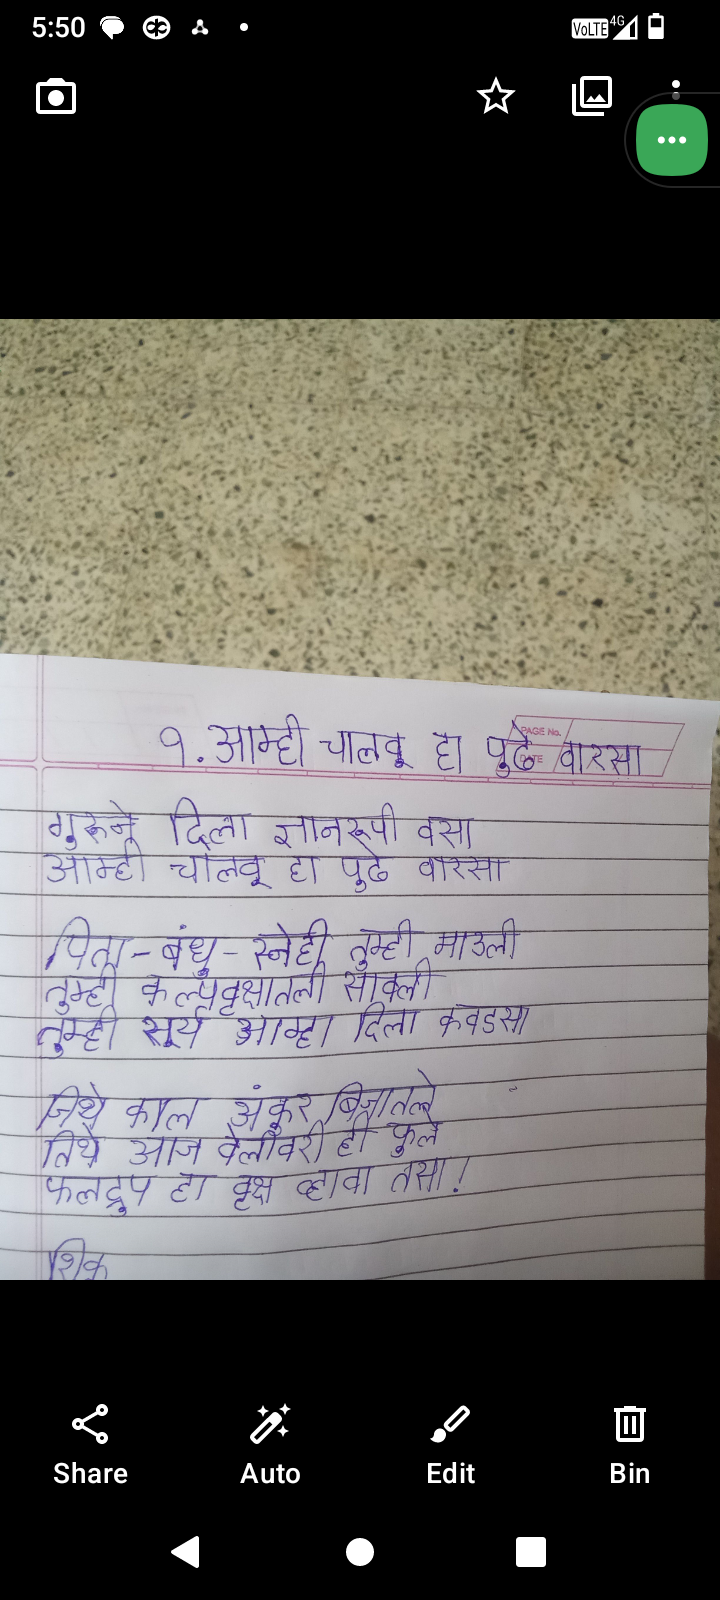 5:50
VoLTE 4G
PAGE No.
DATE
१. आम्ही चालवू हा पुढे वारसा
गुरुने दिला ज्ञानरूपी वसा
आम्ही चालवू हा पुढे वारसा
पिता - बंधु - स्नेही तुम्ही माउली
तुम्ही कल्पवृक्षातली सावली
तुम्ही सूर्य आम्हा दिला कवडसा
जिथे काल अंकुर बिजातले
तिथे आज वेलीवरी ही फुले
फलद्रुप हा वृक्ष व्हावा तसा!
Share Auto Edit Bin